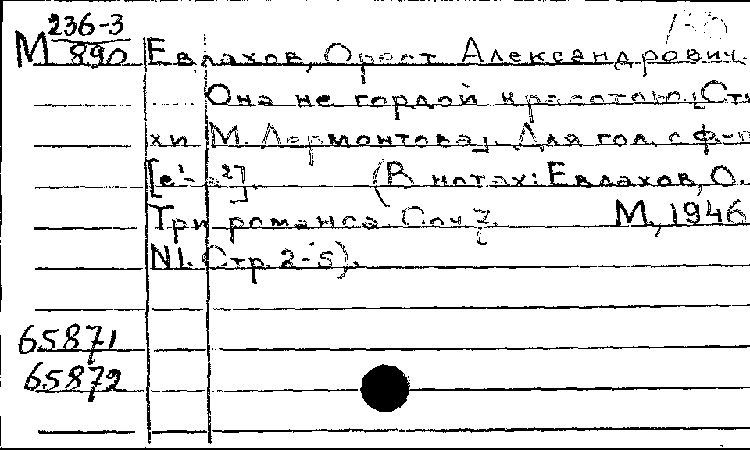 236-3
М 890 Евлахов, Орест Александрович.
Она не гордой красотою. [Сти
хи М. Лермонтова]. Для гол. с ф-п
[e¹- ²]. (В нотах: Евлахов, О.
Три романса. Соч. 7. М., 1946
N1. Стр. 2-5).
65871
65872